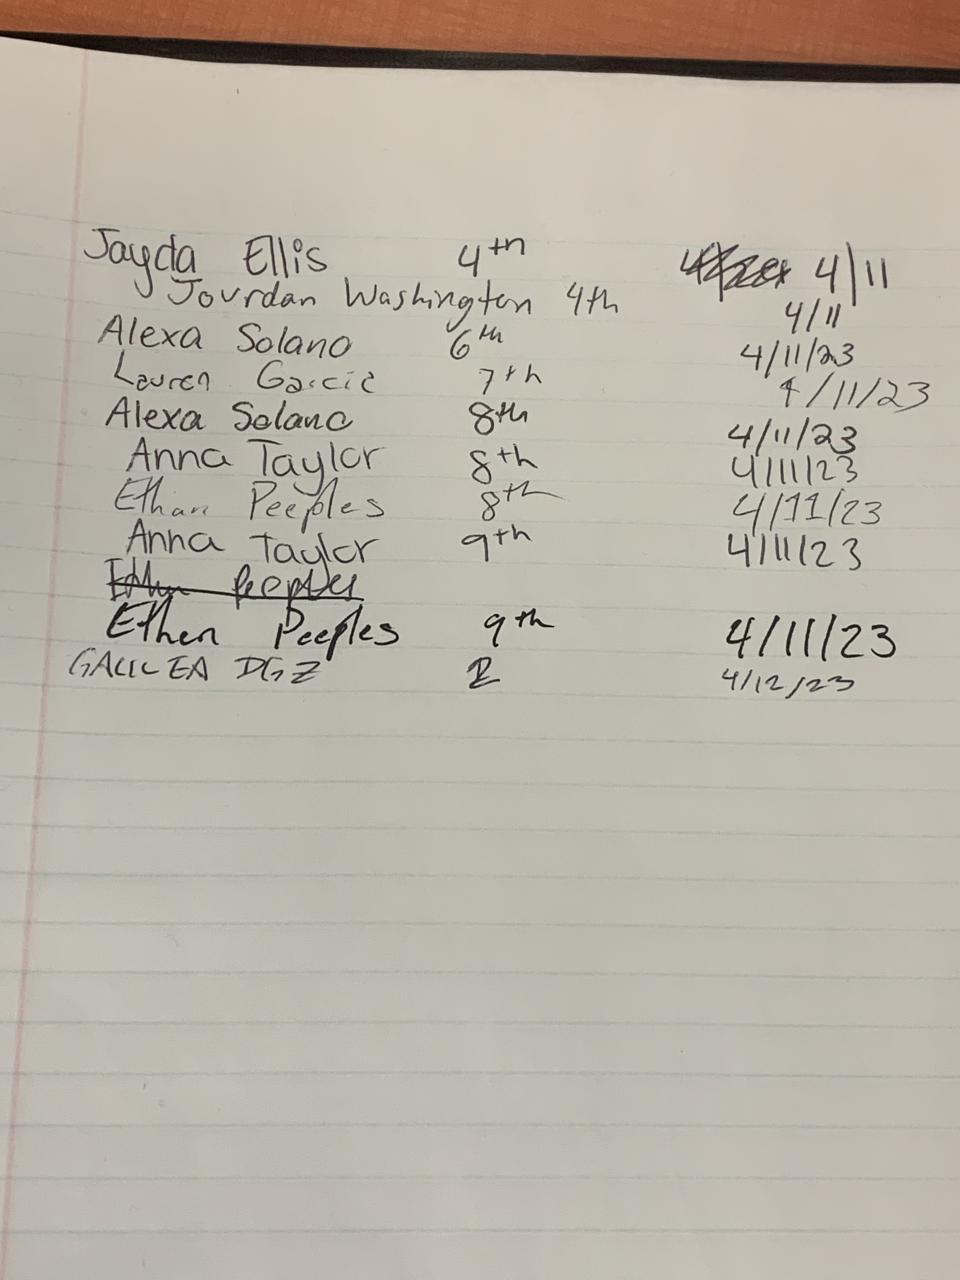 Jayda Ellis 4th 4/11
Jourdan Washington 4th 4/11
Alexa Solano 6th 4/11/23
Lauren Garcia 7th 4/11/23
Alexa Solano 8th 4/11/23
Anna Taylor 8th 4/11/23
Ethan Peeples 8th 4/11/23
Anna Taylor 9th 4/11/23
Peeples
Ethan Peeples 9th 4/11/23
GALILEA DGZ 2 4/12/23